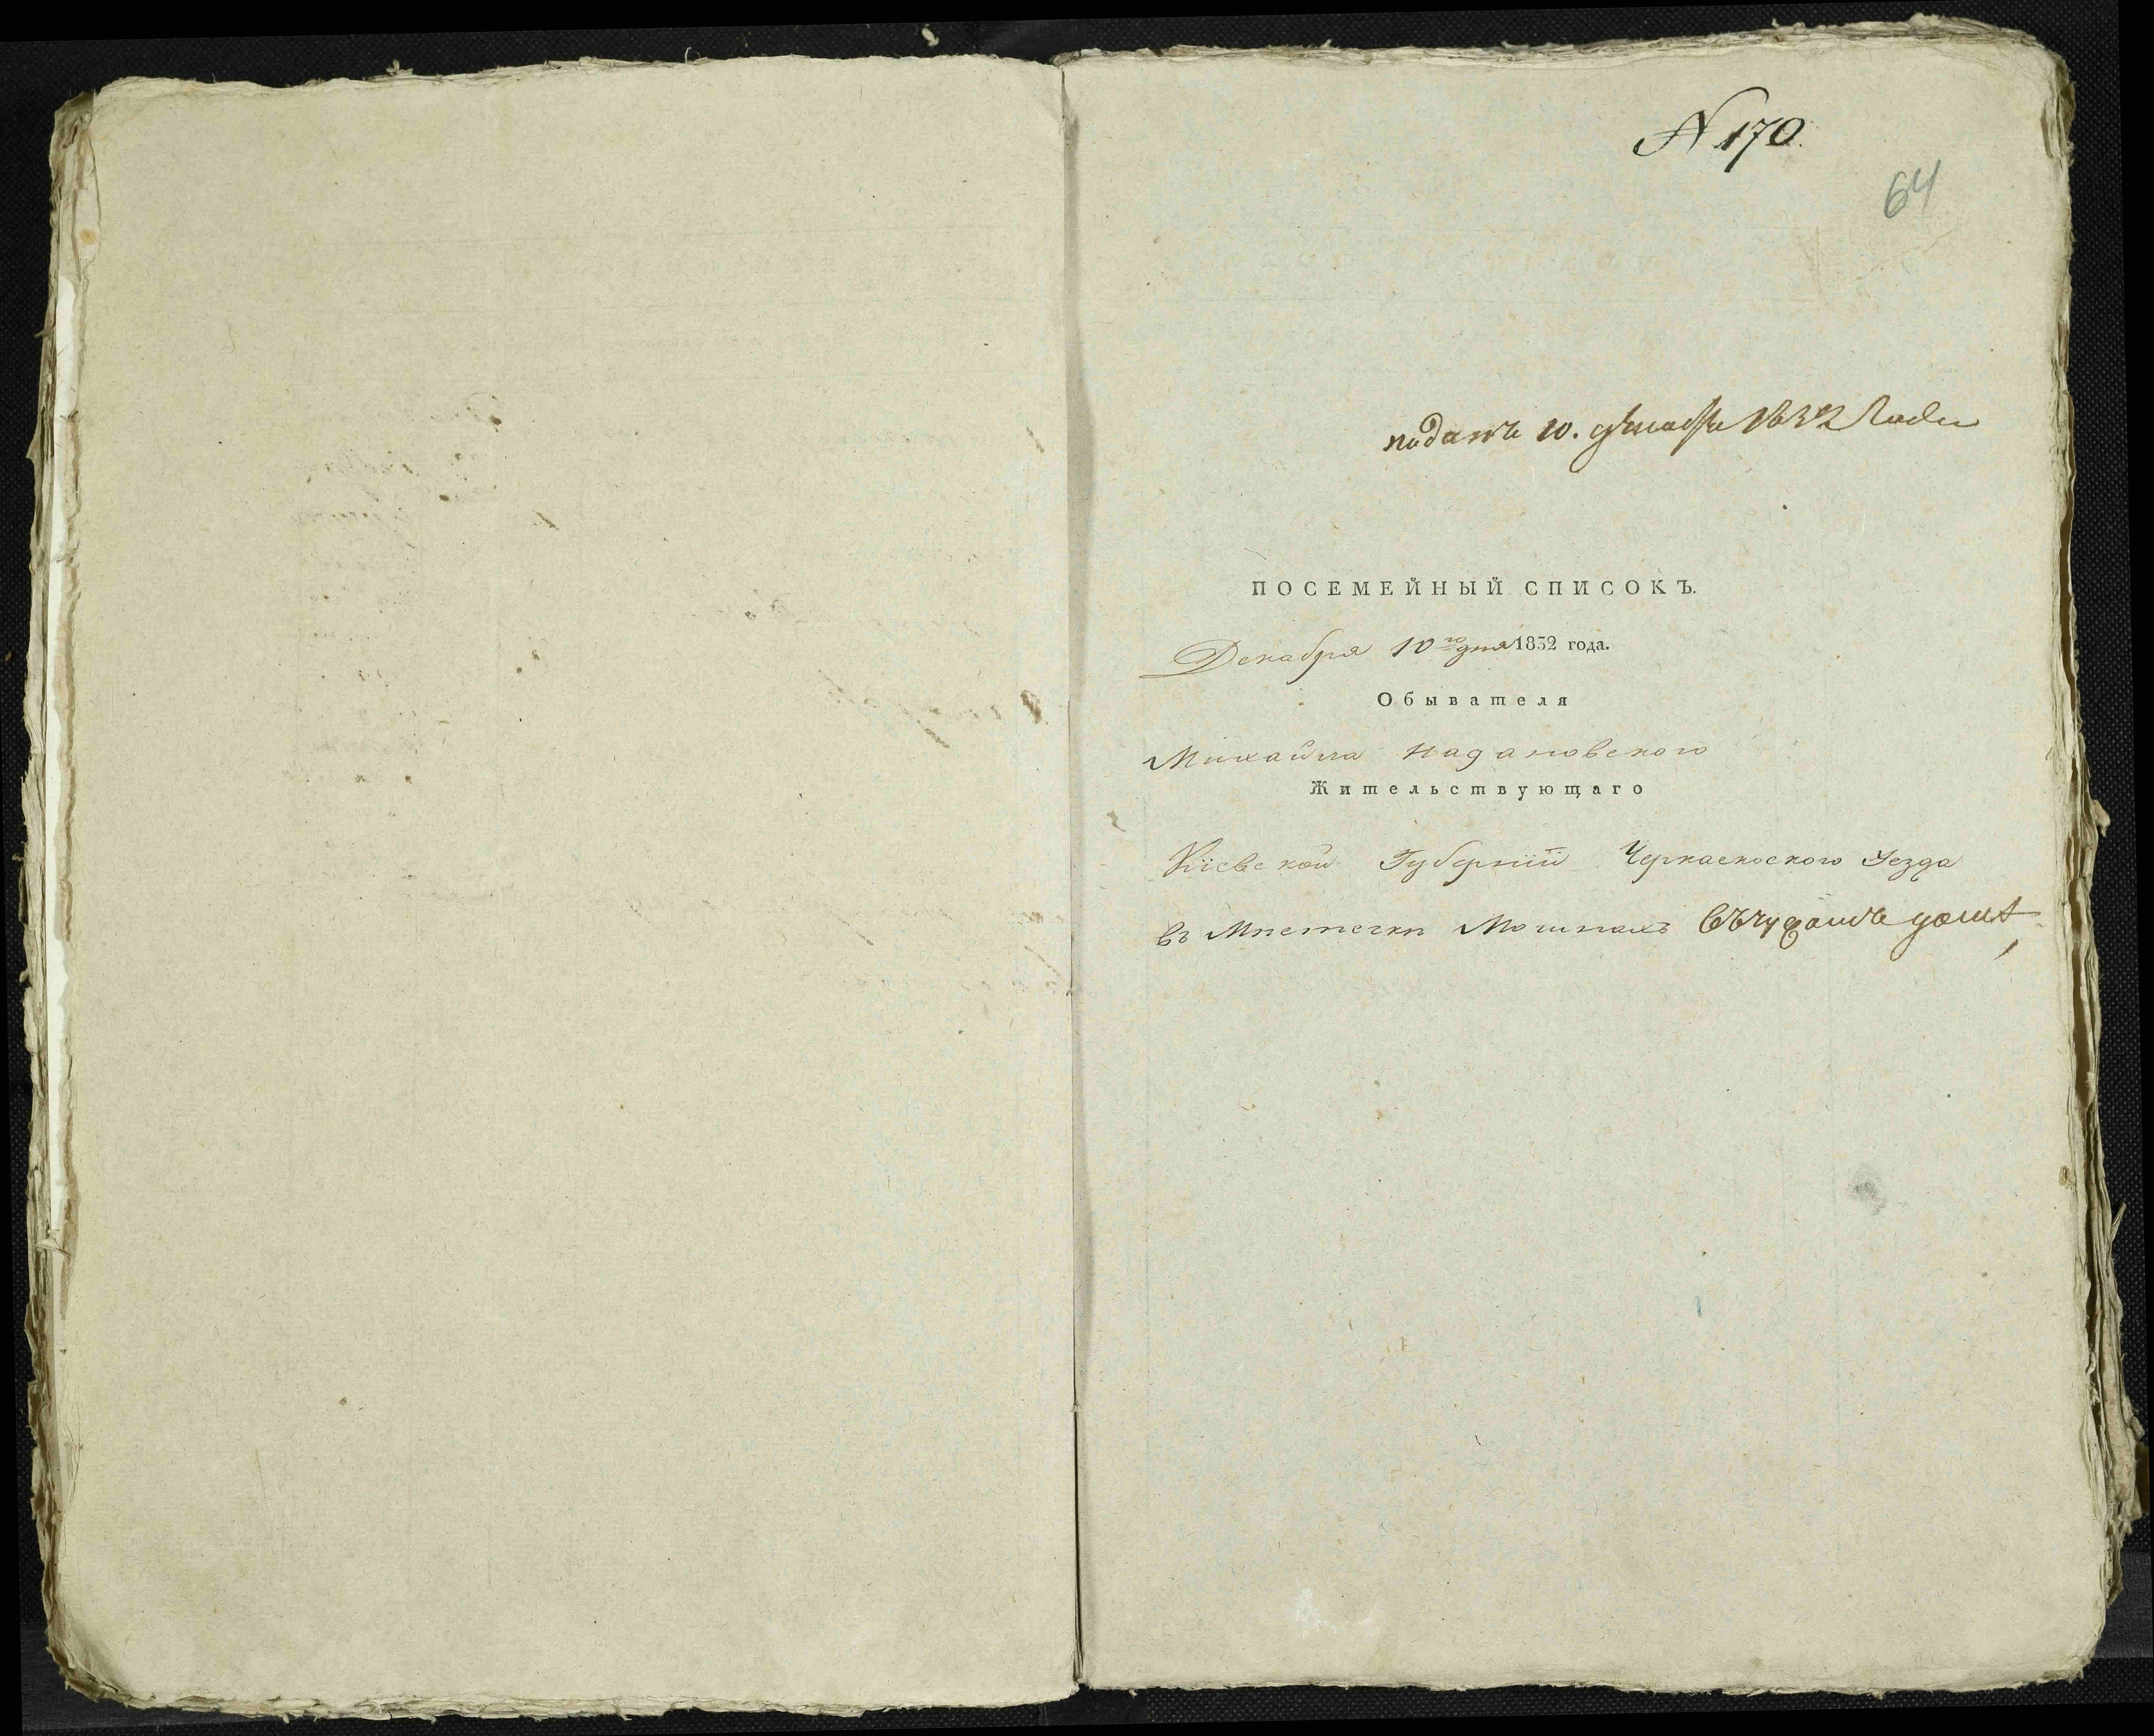 N 170.
64
поданъ 10. декабря 1832 года
ПОСЕМЕЙНЫЙ СПИСОКЪ.
Декабря 10го дня 1832 года.
Обывателя
Михайла Надановского
Жительствующаго
Кіевской Губерніи Черкаскоского Уезда
въ Мѣстечкѣ Мошнахъ въ чужомъ домѣ,